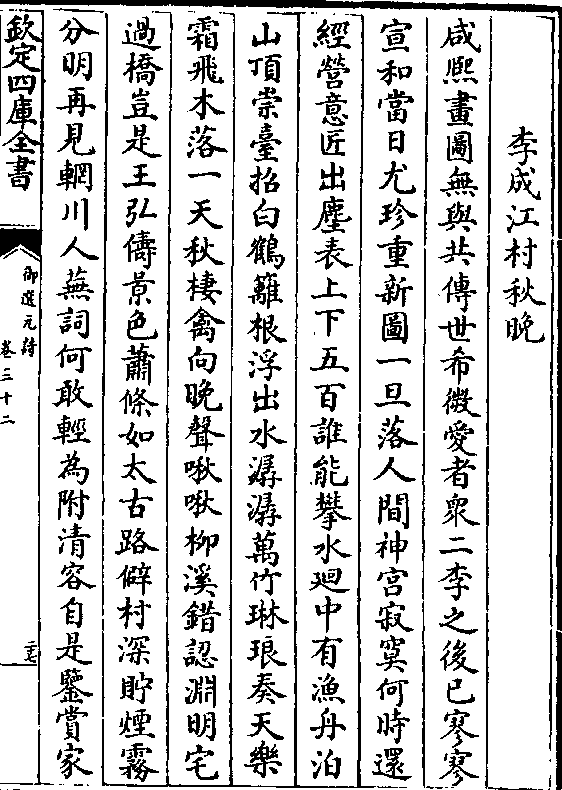 李成江村秋晚
咸熙畫圖無與共傳世希微愛者衆二李之後已寥寥
宣和當日尤珍重新圖一旦落人間神宮寂寞何時還
經營意匠出塵表上下五百誰能攀水迴中有漁舟泊
山頂崇臺招白鶴籬根浮出水潺潺萬竹琳琅奏天樂
霜飛木落一天秋棲禽向晚聲啾啾柳溪錯認淵明宅
過橋豈是王弘儔景色蕭條如太古路僻村深貯煙霧
分明再見輞川人蕪詞何敢輕為附清容自是鑒賞家
欽定四庫全書
御選元詩
卷三十二
二七